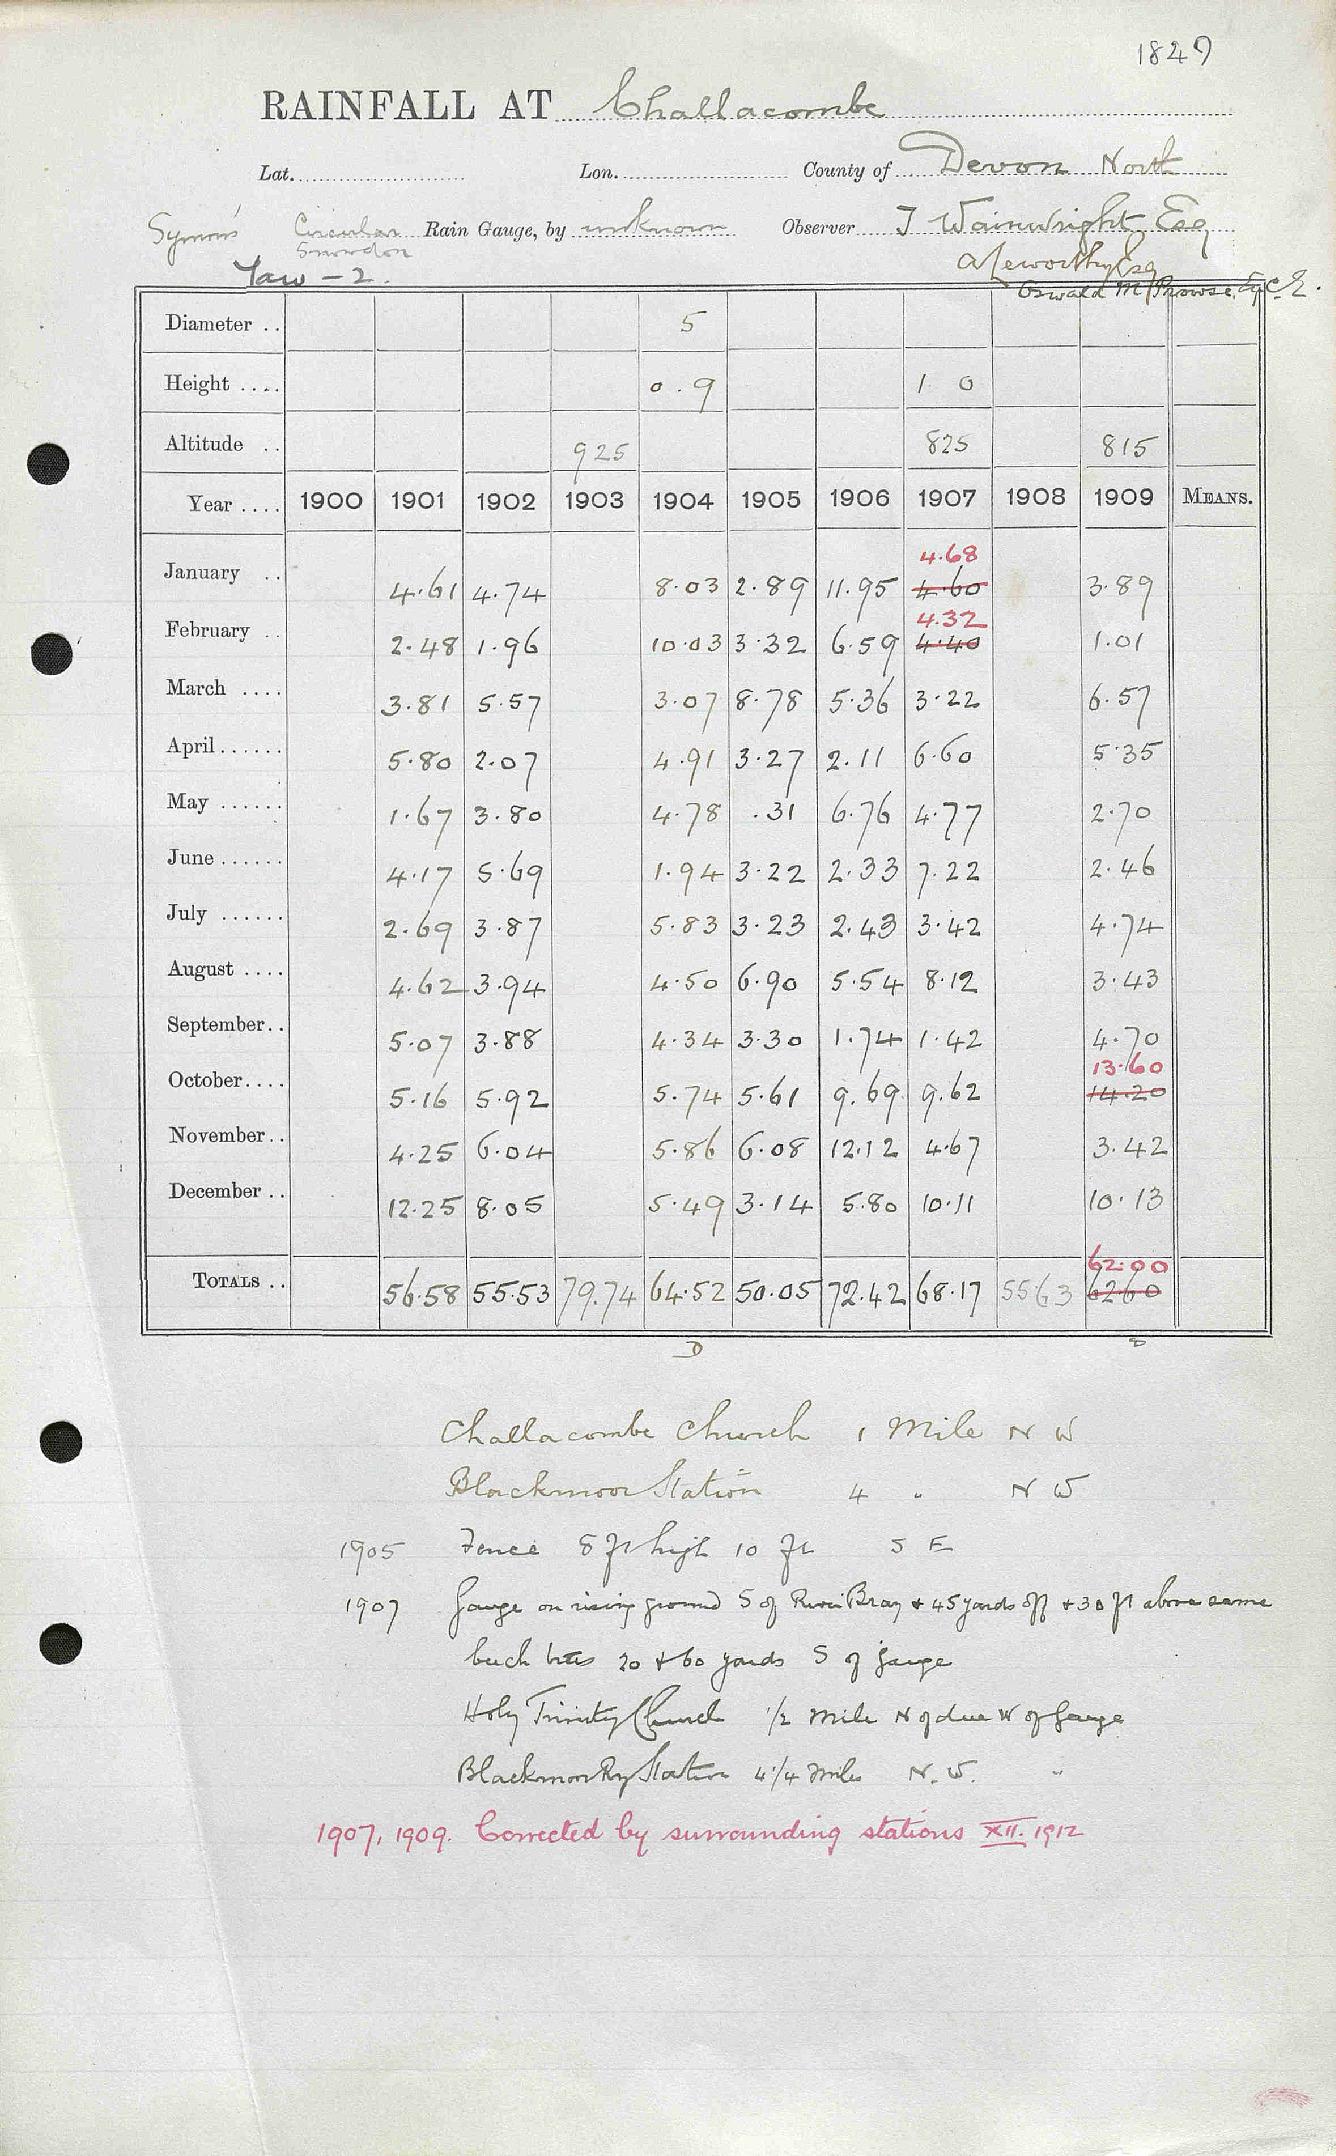 1849
RAINFALL AT Challacombe
Lat. Lon. County of Devon North
Symons Circular Rain Gauge, by unknown Observer J Wainwright Esq
Snowdon
Taw - 2.
Oswald M Prowse, Esq C.E.
Diameter .. 5
Height .... 0.9 1 0
Altitude .. 925 825 815
Year .... 1900 1901 1902 1903 1904 1905 1906 1907 1908 1909 MEANS.
4.68
January .. 4.61 4.74 8.03 2.89 11.95 4.60 3.89
4.32
February .. 2.48 1.96 10.03 3.32 6.59 4.40 1.01
March .... 3.81 5.57 3.07 8.78 5.36 3.22 6.57
April ...... 5.80 2.07 4.91 3.27 2.11 6.60 5.35
May ...... 1.67 3.80 4.78 .31 6.76 4.77 2.70
June ...... 4.17 5.69 1.94 3.22 2.33 7.22 2.46
July ...... 2.69 3.87 5.83 3.23 2.43 3.42 4.74
August .... 4.62 3.94 4.50 6.90 5.54 8.12 3.43
September.. 5.07 3.88 4.34 3.30 1.74 1.42 4.70
13.60
October.... 5.16 5.92 5.74 5.61 9.69 9.62 14.20
November.. 4.25 6.04 5.86 6.08 12.12 4.67 3.42
December .. 12.25 8.05 5.49 3.14 5.80 10.11 10.13
62.00
TOTALS .. 56.58 55.53 79.74 64.52 50.05 72.42 68.17 55 63 62 60
D
Challacombe Church 1 Mile N W
Blackmoor Station 4 " N W
1905 Fence 8 ft high 10 ft S E
1907 Gauge on rising ground S of River Bray + 45 yards off + 30 ft above same
beech trees 20 + 60 yards S of gauge
Holy Trinity Church 1/2 Mile N of due W of Gauge
Blackmoor Ry Station 4 1/4 Miles N. W. "
1907, 1909. Corrected by surrounding stations XII. 1912